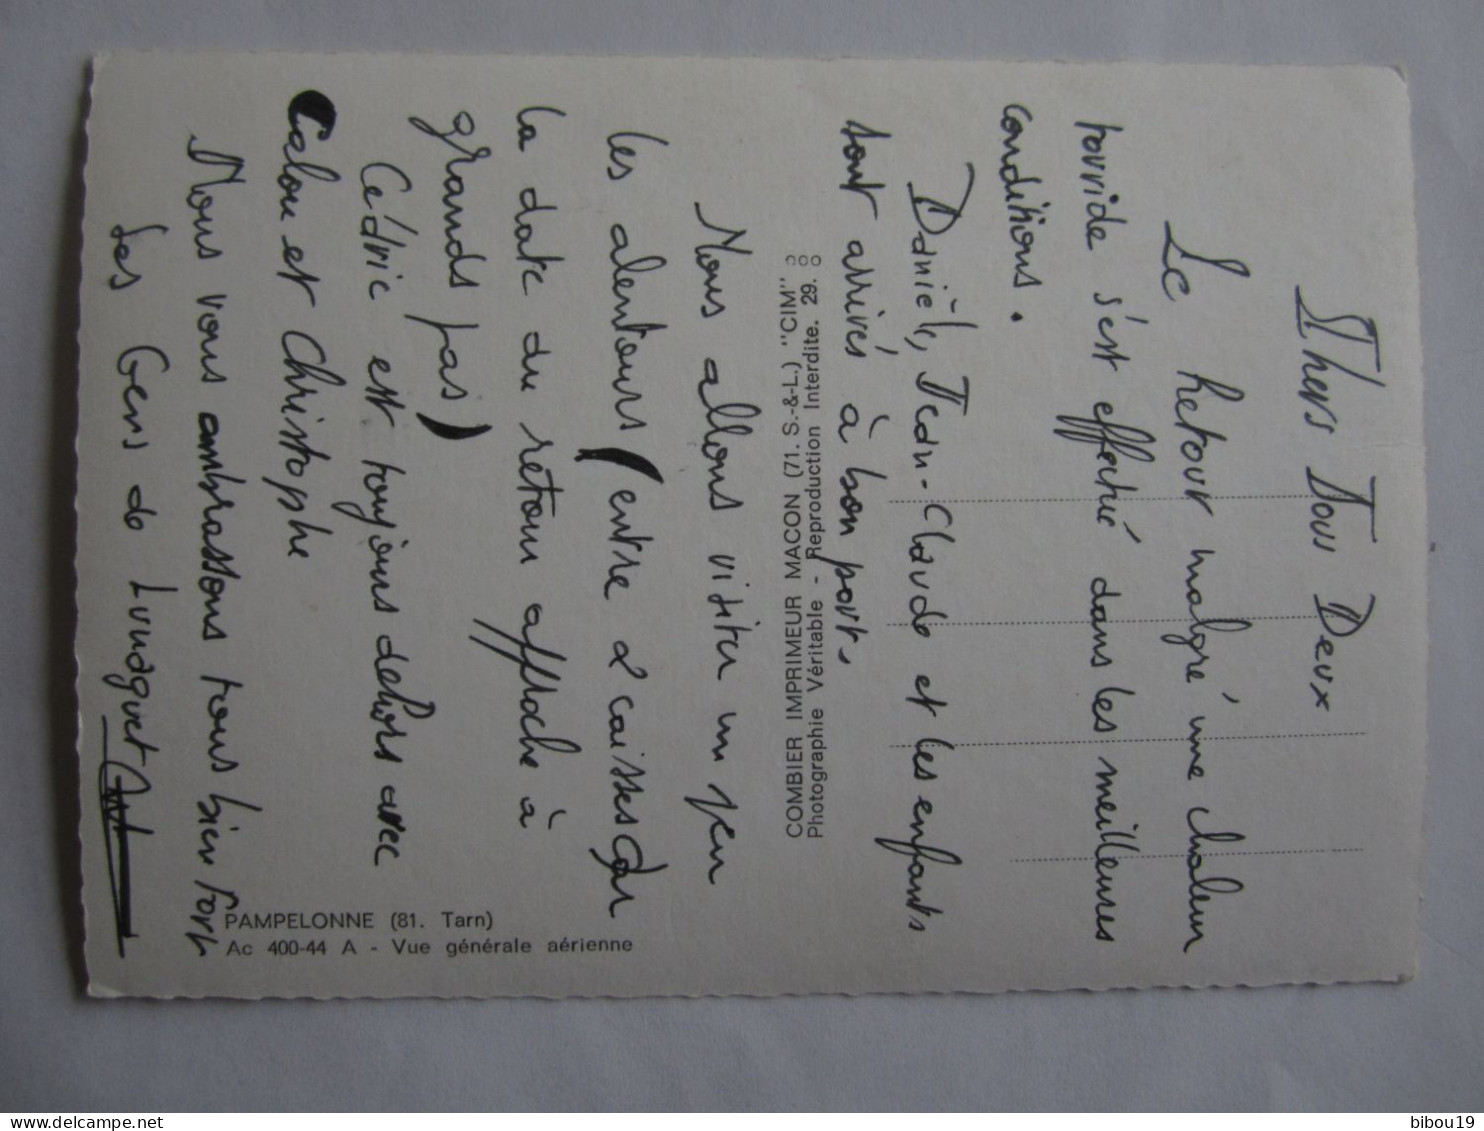 Chers Tous Deux
Le Retour malgré une chaleur
torride s'est effectué dans les meilleures
conditions.
Danièle, Jean-Claude et les enfants
sont arrivés à bon port.
Nous allons visiter un peu
les alentours (entre 2 caisses car
la date du retour approche à
grands pas)
Cédric est toujours dehors avec
et Christophe
Nous vous embrassons tous bien fort
Les Gens de
COMBIER IMPRIMEUR MACON (71. S.-&-L.) "CIM"
Photographie Véritable - Reproduction Interdite. 29.
PAMPELONNE (81. Tarn)
Ac 400-44 A - Vue générale aérienne
bibou19